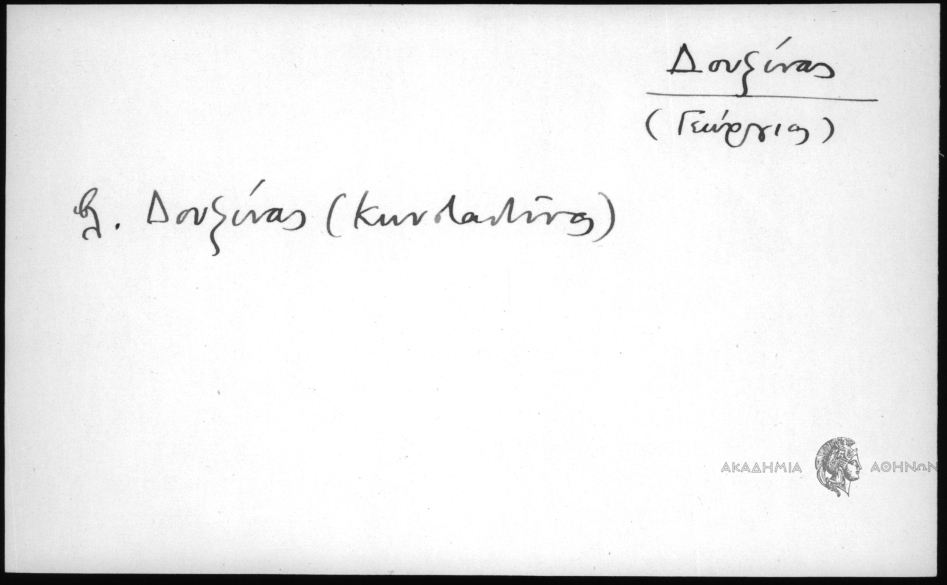 Δουζίνας
(Γεώργιος)
βλ. Δουζίνας (Κωνσταντίνος)
ΑΚΑΔΗΜΙΑ ΑΘΗΝΩΝ